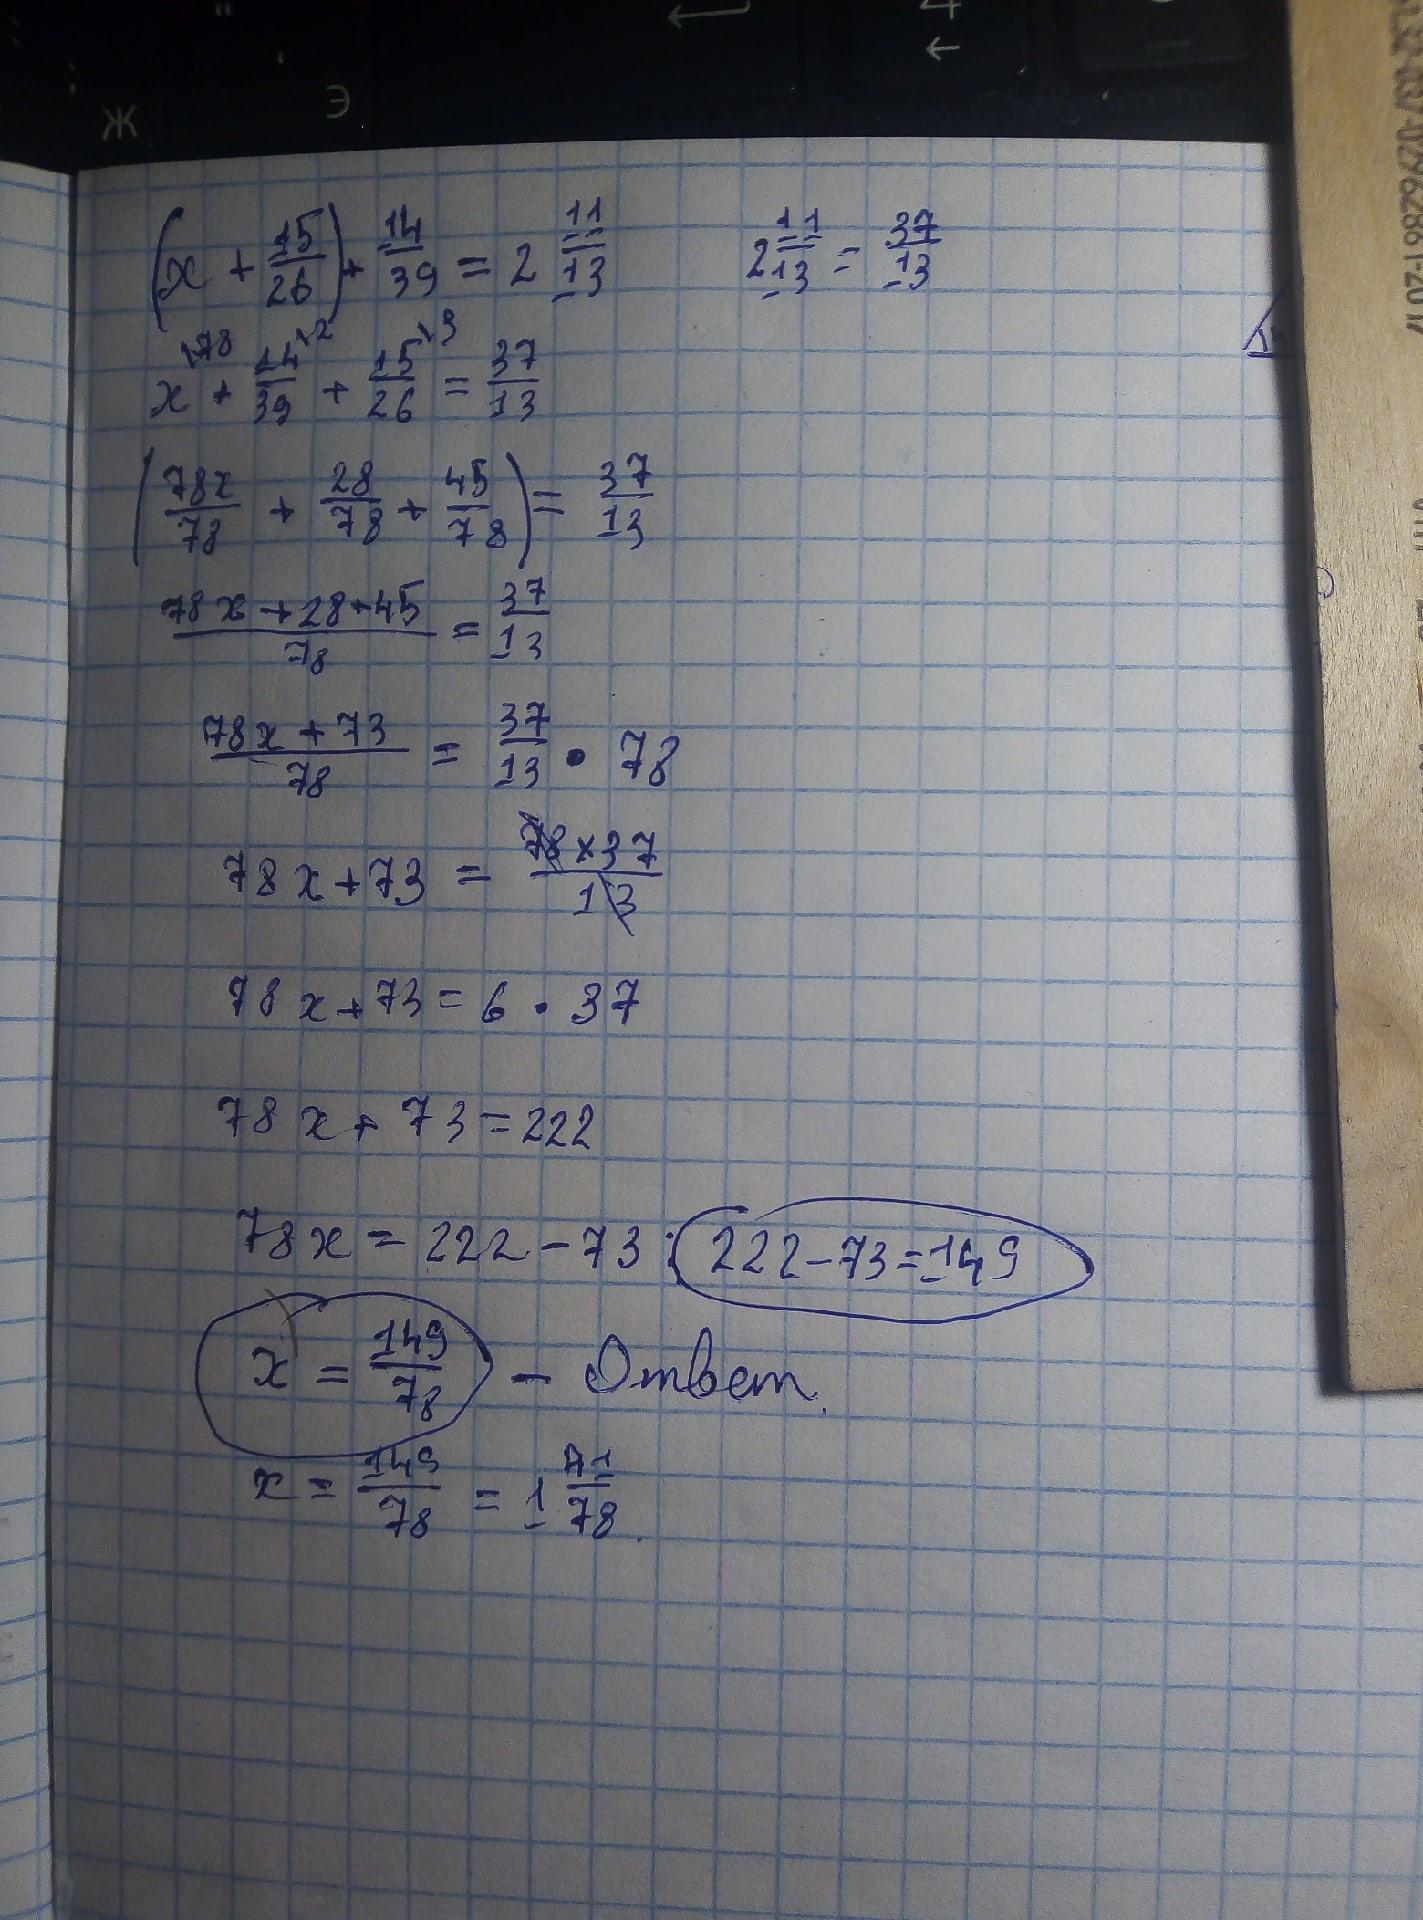 Ж Э
(x + 15/26) + 14/39 = 2 11/13    2 11/13 = 37/13
x^\78 + 14/39^\2 + 15/26^\3 = 37/13
(78x/78 + 28/78 + 45/78) = 37/13
78x + 28 + 45/78 = 37/13
78x + 73/78 = 37/13 • 78
78x + 73 = 78 × 37/13
78x + 73 = 6 · 37
78x + 73 = 222
78x = 222 - 73 : 222 - 73 = 149
x = 149/78 - Ответ.
x = 149/78 = 1 71/78.